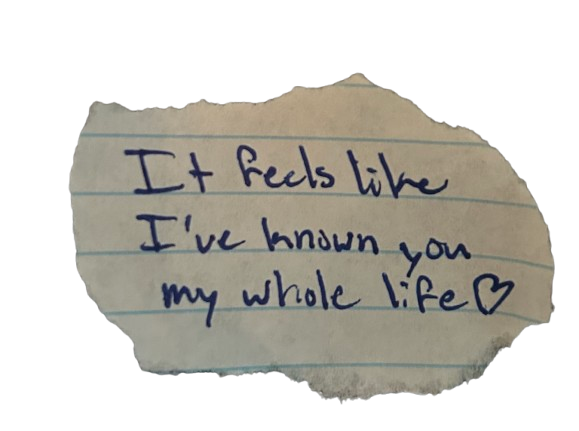 It feels like
I've known you
my whole life♡